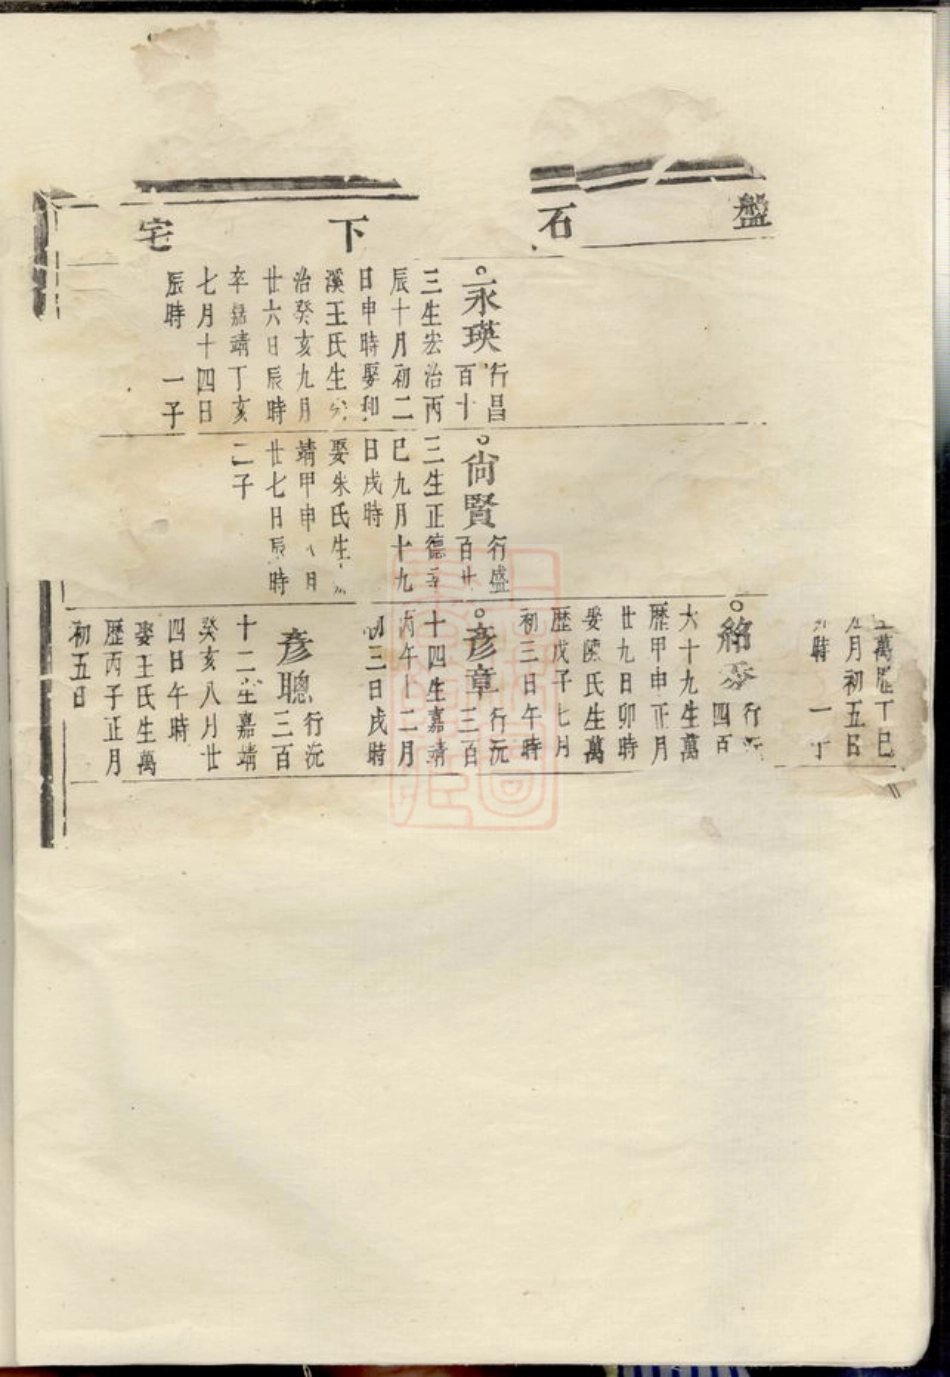 盤石下宅
永瑛
行昌
百十
三生宏治丙
辰十月初二
日申時娶和
溪王氏生
治癸亥九月
廿六日辰時
卒嘉靖丁亥
七月十四日
辰時 一子
尙賢
行盛
百廿
三生正德
巳九月十九
日戌時
娶朱氏生
靖甲申 月
廿七日辰時
二子
萬歷丁巳
月初五日
時 一子
銘
行
四百
六十九生萬
歷甲申正月
廿九日卯時
娶陳氏生萬
歷戊子七月
初三日午時
彥章
行沅
三百
十四生嘉靖
丙午十二月
初三日戌時
彥聰
行沅
三百
十二生嘉靖
癸亥八月廿
四日午時
娶王氏生萬
歷丙子正月
初五日